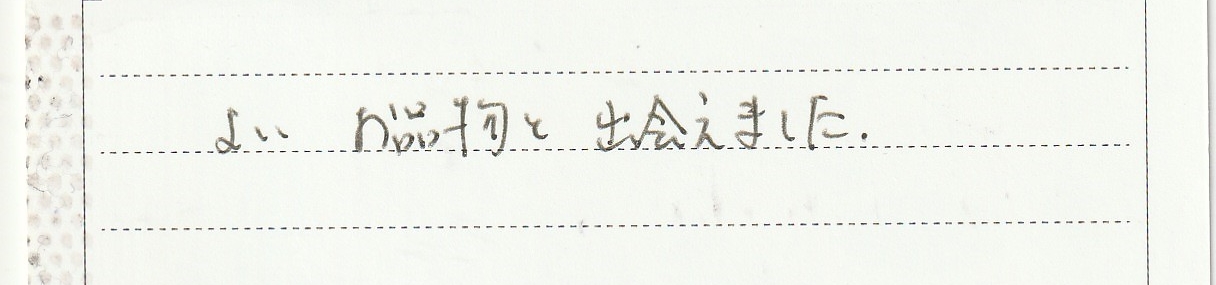 よい お品物と 出会えました.